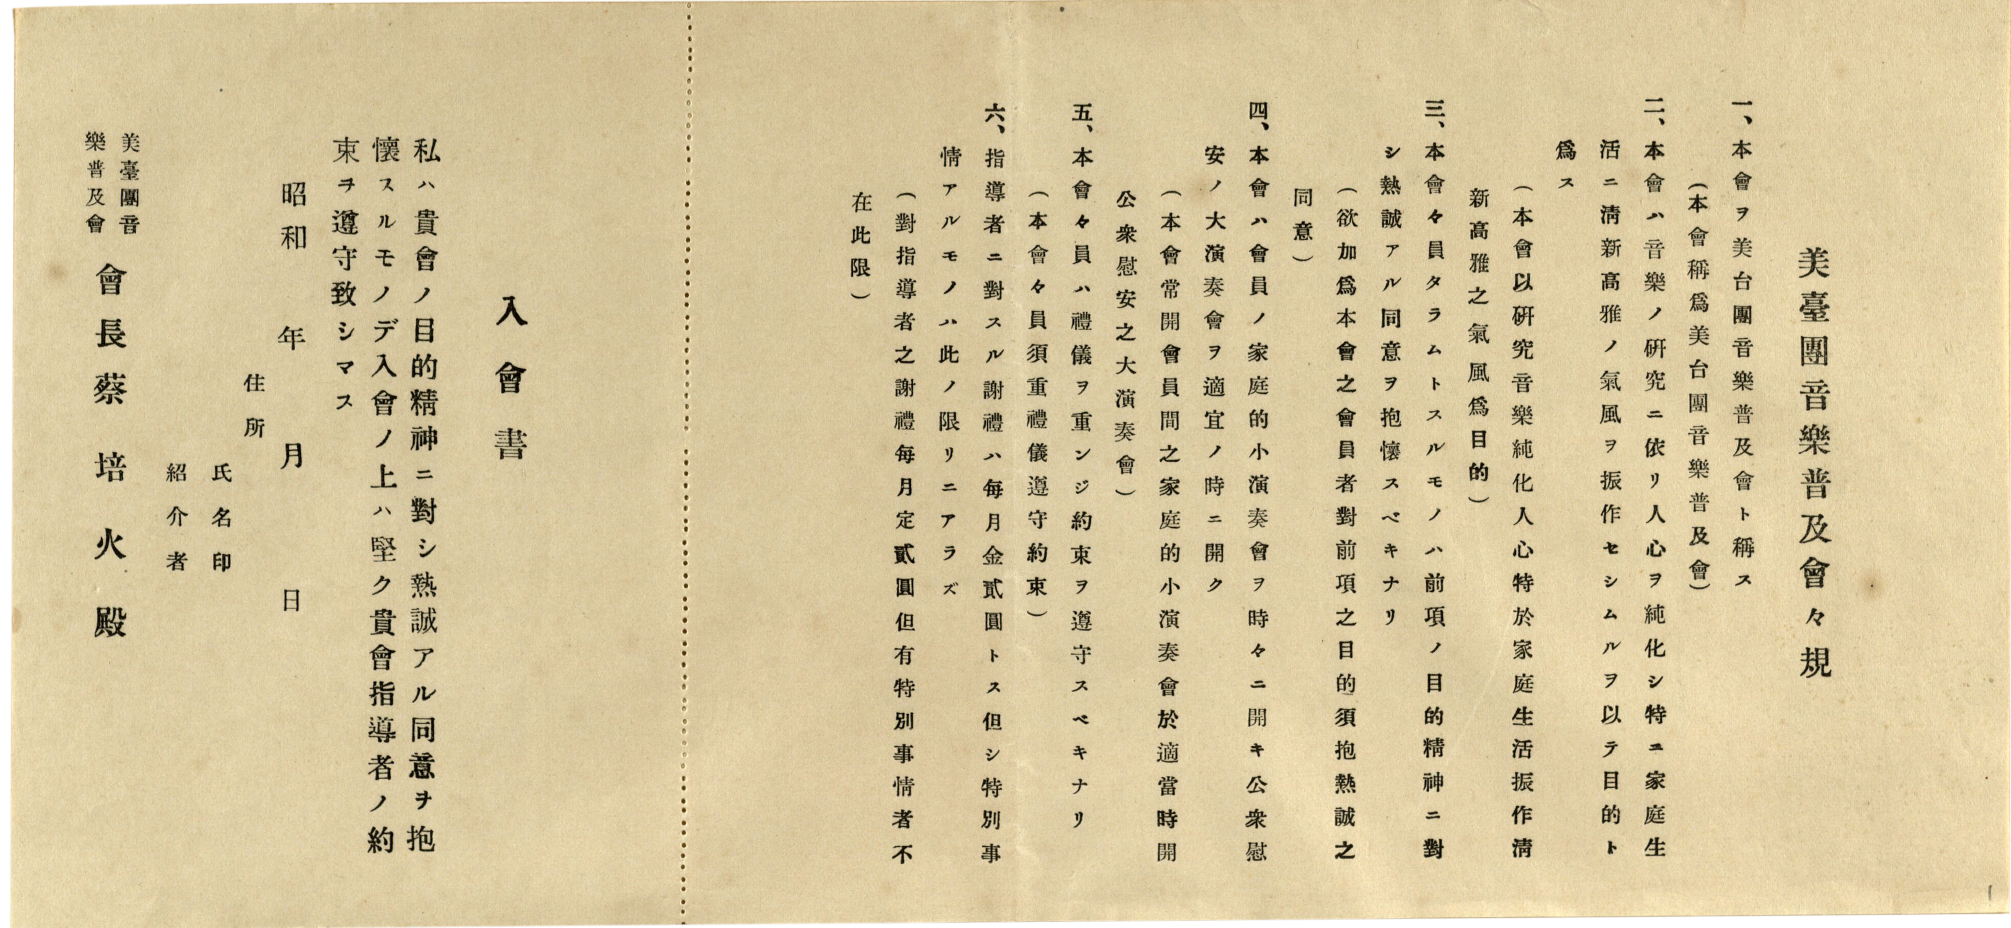 美臺團音樂普及會々規
一、本會ヲ美台團音樂普及會ト稱ス
（本會稱爲美台團音樂普及會）
二、本會ハ音樂ノ硏究ニ依リ人心ヲ純化シ特ニ家庭生
活ニ淸新高雅ノ氣風ヲ振作セシムルヲ以テ目的ト
爲ス
（本會以硏究音樂純化人心特於家庭生活振作淸
新高雅之氣風爲目的）
三、本會々員タラムトスルモノハ前項ノ目的精神ニ對
シ熱誠アル同意ヲ抱懷スベキナリ
（欲加爲本會之會員者對前項之目的須抱熱誠之
同意）
四、本會ハ會員ノ家庭的小演奏會ヲ時々ニ開キ公衆慰
安ノ大演奏會ヲ適宜ノ時ニ開ク
（本會常開會員間之家庭的小演奏會於適當時開
公衆慰安之大演奏會）
五、本會々員ハ禮儀ヲ重ンジ約束ヲ遵守スベキナリ
（本會々員須重禮儀遵守約束）
六、指導者ニ對スル謝禮ハ每月金貳圓トス但シ特別事
情アルモノハ此ノ限リニアラズ
（對指導者之謝禮每月定貳圓但有特別事情者不
在此限）
入會書
私ハ貴會ノ目的精神ニ對シ熱誠アル同意ヲ抱
懷スルモノデ入會ノ上ハ堅ク貴會指導者ノ約
束ヲ遵守致シマス
昭和　年　月　日
住所
氏名印
紹介者
美臺團音
樂普及會 會長蔡培火殿